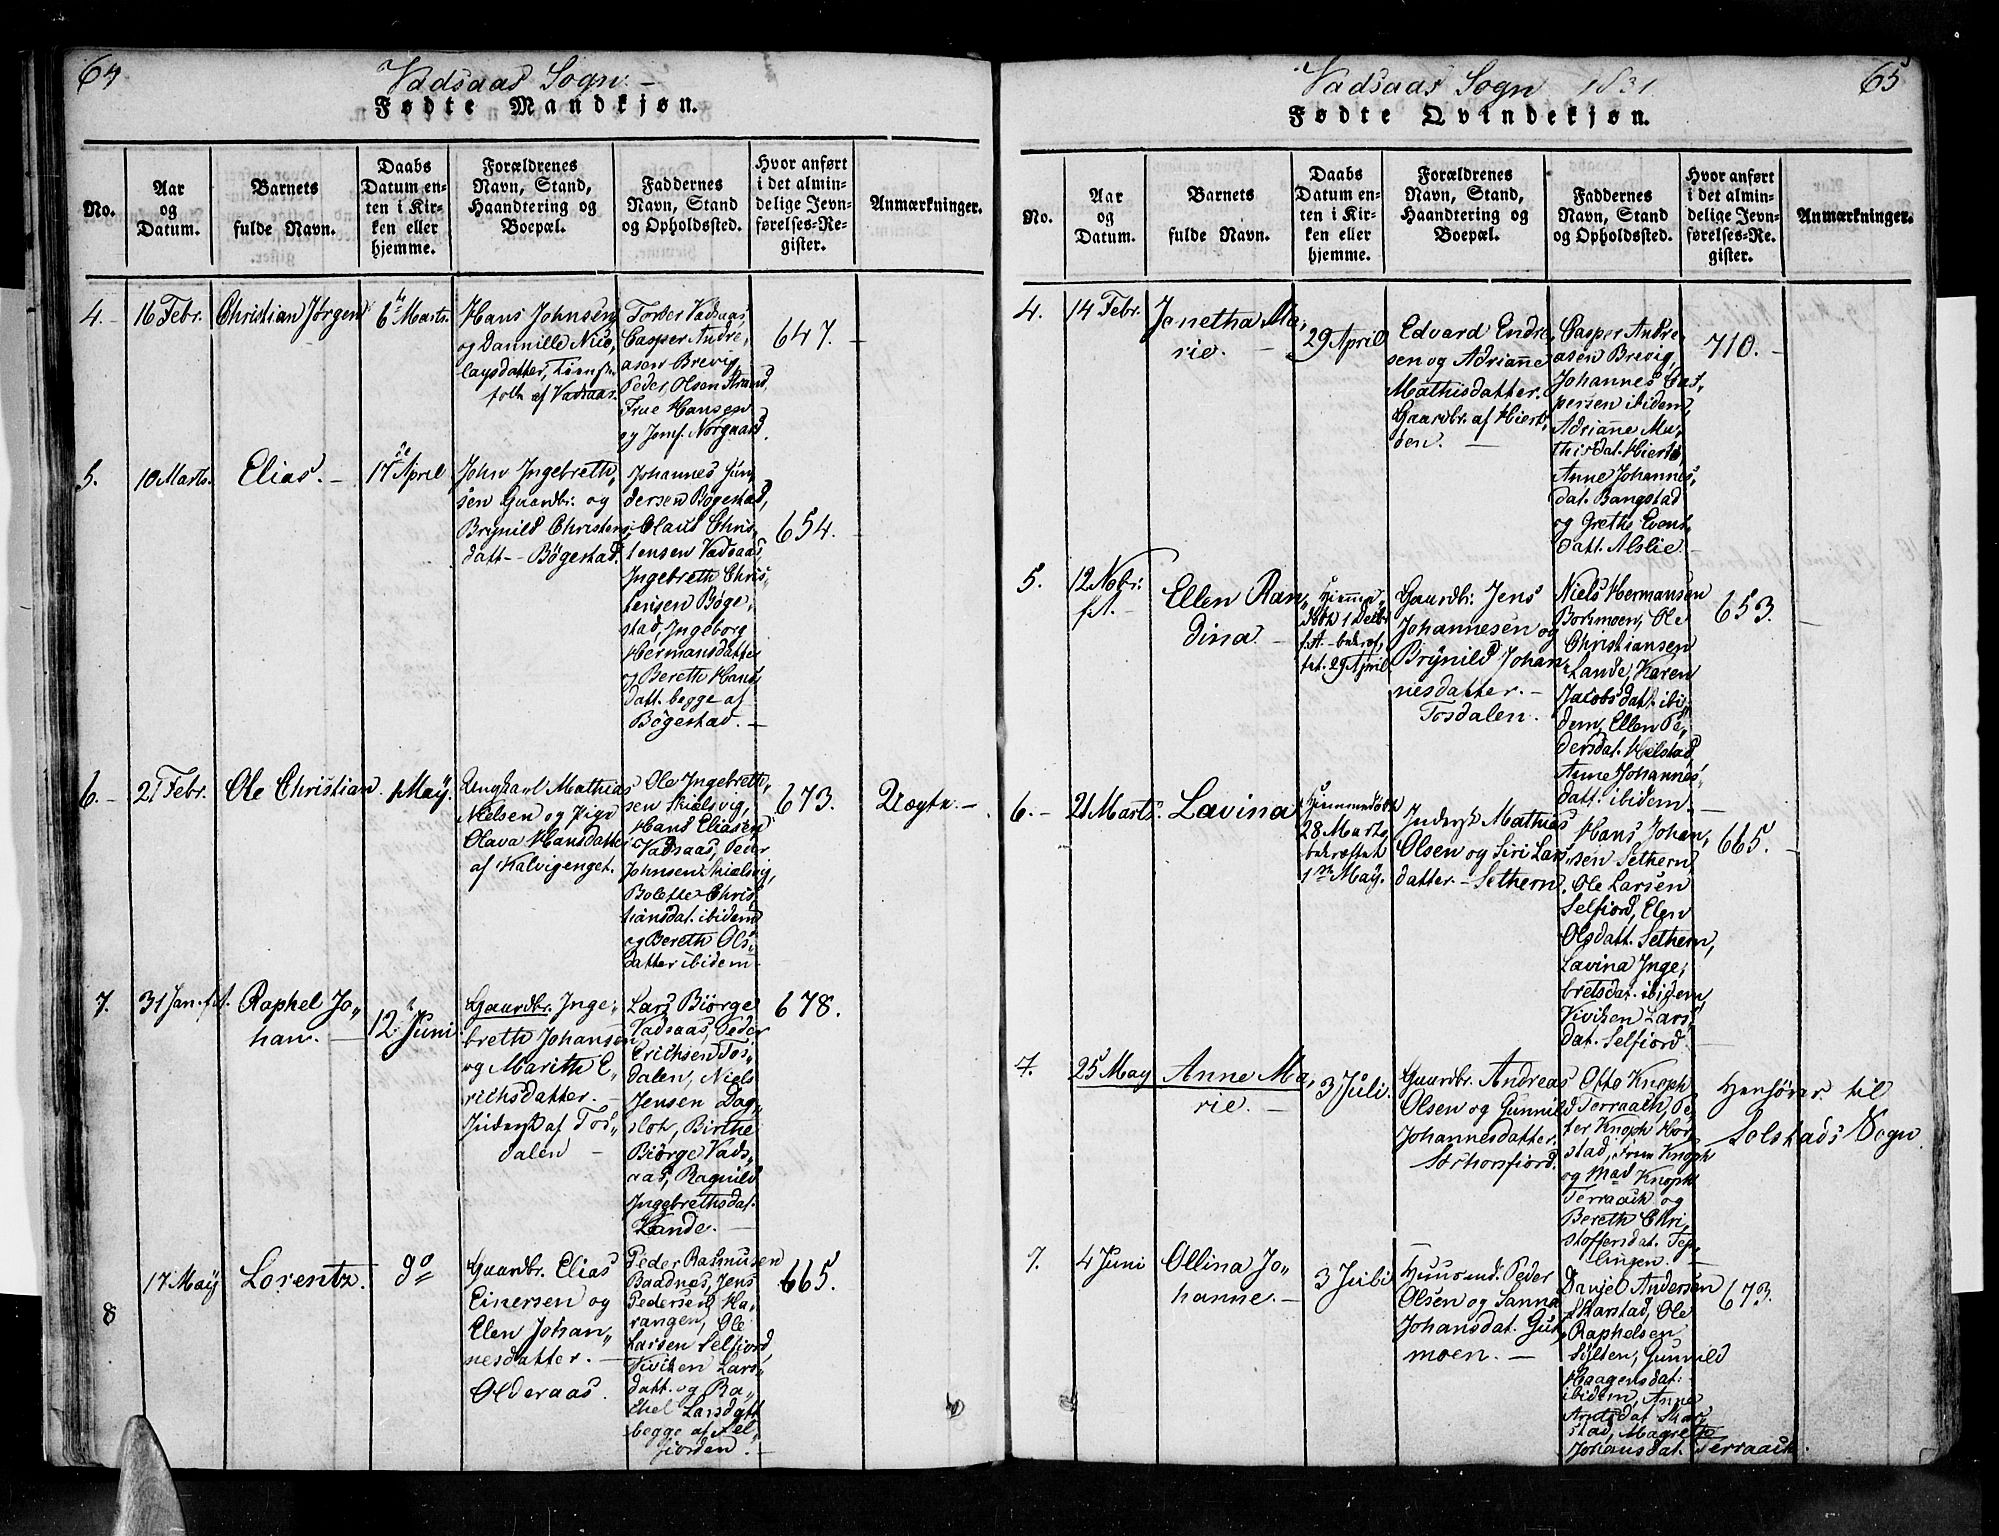 64
Vadsaas Sogn. –
Fødte Mandkjøn.
No.
Aar
og
Datum.
Barnets
fulde Navn.
Daabs
Datum en-
ten i Kir-
ken eller
hjemme.
Forældrenes
Navn, Stand,
Haandtering og
Boepæl.
Faddernes
Navn, Stand
og Opholdssted.
Hvor anført
i det almin-
delige Jevn-
førelses-Re-
gister.
Anmærkninger.
4. –
16 Febr.
Christian Jørgen
6te Marts.
Hans Johnsen
og Dannille Nico,
laysdatter,
folk af Vadsaas.
Torber Vadsaas,
Casper Andre,
asen Brevig,
Peder Olsen Strand,
Frue Hansen
og Jomf. Norgaard.
647. –
5.
10 Marts.
Elias. –
17de April
John Ingebreth,
sen Gaardbr. og
Brynild Christens,
datt – Bøgestad.
Johannes Gun,
dersen Bøgestad,
Claus Chris,
tensen Vadsaas,
Ingebreth Chris,
tensen Bøge,
stad, Ingeborg
Hermansdatter
og Bereth Hans,
datt. begge af
Bøgestad. –
654. –
6. –
21 Febr.
Ole Christian.
1 May.
Ungkarl Mathias
Nielsen og Pige
Olava Hansdatter
af Kalvigenget.
Ole Ingebreth,
sen Skielsvig,
Hans Eliasen
Vadsaas, Peder
Johnsen Skielsvig,
Bolette Chris,
tiansdat. ibidem
og Bereth Ols,
datter ibidem –
673. –
Uægte. –
7.
31 Jan. f.A.
Raphel Jo,,
han. –
12te Juni
Gaardbr. Inge,
breth Johansen
og Marith E,
richsdatter. –
Inderst af Tos,,
dalen –
Lars Biørge
Vadsaas, Peder
Erichsen Tos,
dalen, Niels
Jensen Dag,
slot, Birthe
Biørge Vads,
aas, Ragnild
Ingebrethsdat.
Lande. –
678.
8
17 May
Lorentz.
do
Gaardbr. Elias
Einersen og
Elen Johan,,
nesdatter. –
Olderaas.
Peder Rasmusen
Baadnæs, Jens
Pedersen Ha,
rangen, Ole
Larsen Selfiord,
Viviken Lars,
datt. og Ra,
chel Larsdatt.
begge af Sel,
fiorden. –
665.
65
Vadsaas Sogn 1831
Fødte Qvindekjøn.
No.
Aar
og
Datum.
Barnets
fulde Navn.
Daabs
Datum en-
ten i Kir-
ken eller
hjemme.
Forældrenes
Navn, Stand,
Haandtering og
Boepæl.
Faddernes
Navn, Stand
og Opholdssted.
Hvor anført
i det almin-
delige Jevn-
førelses-Re-
gister.
Anmærkninger.
4.
14 Febr.
Jonetha Ma,
rie. –
29 April
Edvard Endre,
sen og Adrianne
Mathisdatter.
Gaardbr. af Hiert,
øen. –
Casper Andre,
asen Brevig,
Johannes Cas,
persen ibidem,
Adrianne Ma,
thisdat. Hiertø,
Anne Johannes,
dat. Bangstad
og Grethe Evens,
datt. Alslie. –
710. –
5.
12 Nobr.
f.A. –
Ellen Ran,,
dina –
Hjemme,
døbt 1 Decbr
f.A. – bekræf,
tet. 29 April
Gaardbr. Jens
Johannesen og
Brynild Johan,
nesdatter. –
Tosdalen.
Niels Hermansen
Borkmoen, Ole
Christiansen
Lande, Karen
Jacobsdatt. ibi,
dem, Ellen Pe,
dersdat. Hilstad,
Anne Johannes,
datt. ibidem. –
653. –
6. –
21 Marts.
Lavina
Hjemmedøbt
28 Marts,
bekræftet
1ste May.
Inderst Mathias
Olsen og Siri Lars,
datter. – Sethern.
Hans Johan,
sen Sethern,
Ole Larsen
Selfiord, Elen
Olsdatt. Sethern,
Lavina Inge,
bretsdat. ibidem,
Viviken Lars,
dat. Selfiord.
665. –
7.
25 May
Anne Ma,
rie. –
3 Juli.
Gaardbr. Andreas
Olsen og Gunnild
Johannesdatter.
Storhorsfiord.
Otto Knoph
Terraach, Pe,
ter Knoph Hor,
stad, Frue Knoph
og Mad Knoph
Terraach og
Bereth Chri,
stoffersdat. Tep,
lingen. –
Henhører til
Solstads Sogn
7.
4 Juni
Ollina Jo,,
hanne. –
3 Juli
Huusmd. Peder
Olsen og Sanna
Johansdat. Gut,
moen. –
Daniel Andersen
Skarstad, Ole
Raphelsen
Sylten, Gunnild
Haagensdat.
ibidem, Anne
Arntsdat. Skar,
stad, Magrethe
Johansdat. Terraach.
673.